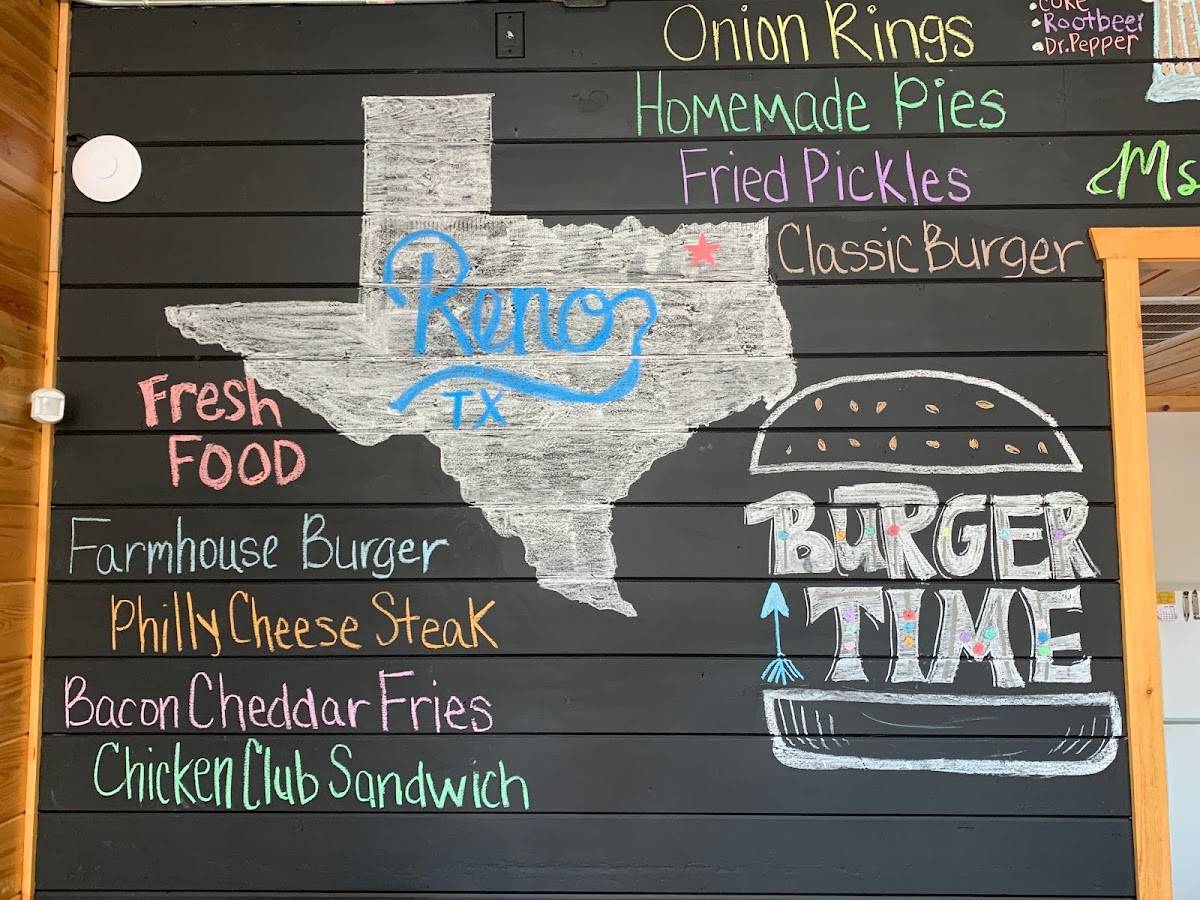 Onion Rings
Coke
Rootbeer
Dr. Pepper
Homemade Pies
Fried Pickles
Ms
Classic Burger
Reno
TX
Fresh
FOOD
BURGER
TIME
Farmhouse Burger
Philly Cheese Steak
Bacon Cheddar Fries
Chicken Club Sandwich